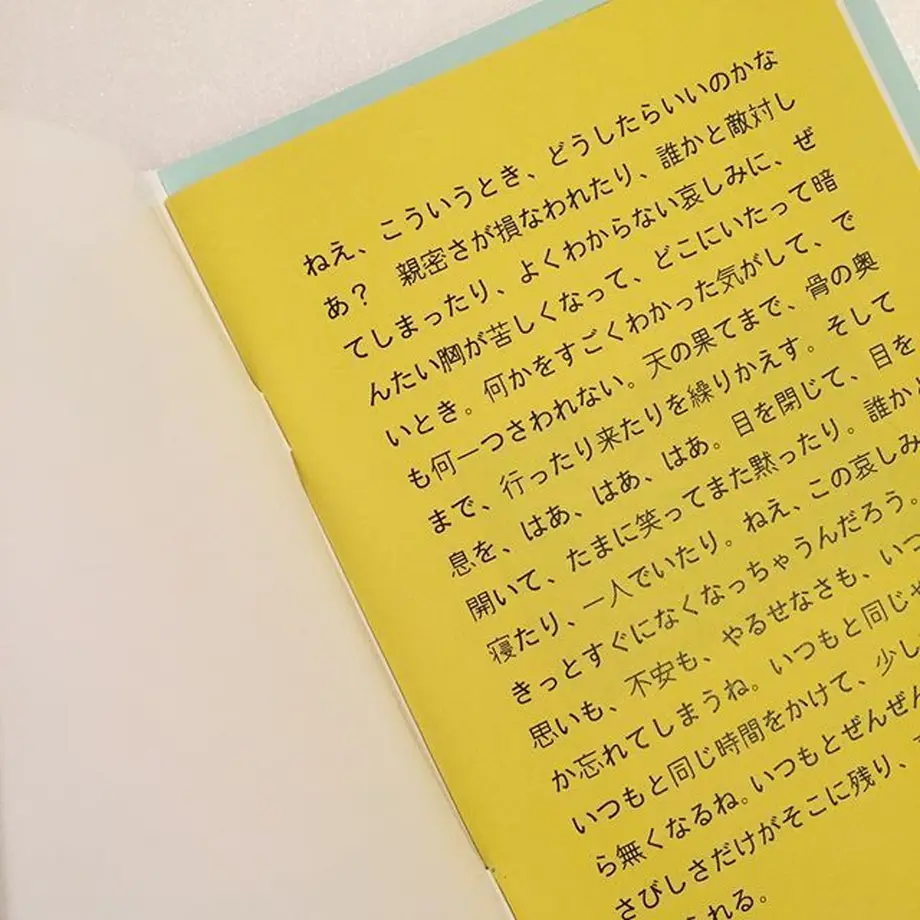 ねえ、こういうとき、どうしたらいいのかな
あ？　親密さが損なわれたり、誰かと敵対し
てしまったり、よくわからない哀しみに、ぜ
んたい胸が苦しくなって、どこにいたって暗
いとき。何かをすごくわかった気がして、で
も何一つさわれない。天の果てまで、骨の奥
まで、行ったり来たりを繰りかえす。そして
息を、はあ、はあ、はあ。目を閉じて、目を
開いて、たまに笑ってまた黙ったり。誰かと
寝たり、一人でいたり。ねえ、この哀しみ
きっとすぐになくなっちゃうんだろう。
思いも、不安も、やるせなさも、いつ
か忘れてしまうね。いつもと同じや
いつもと同じ時間をかけて、少し
ら無くなるね。いつもとぜんぜん
さびしさだけがそこに残り、
れる。